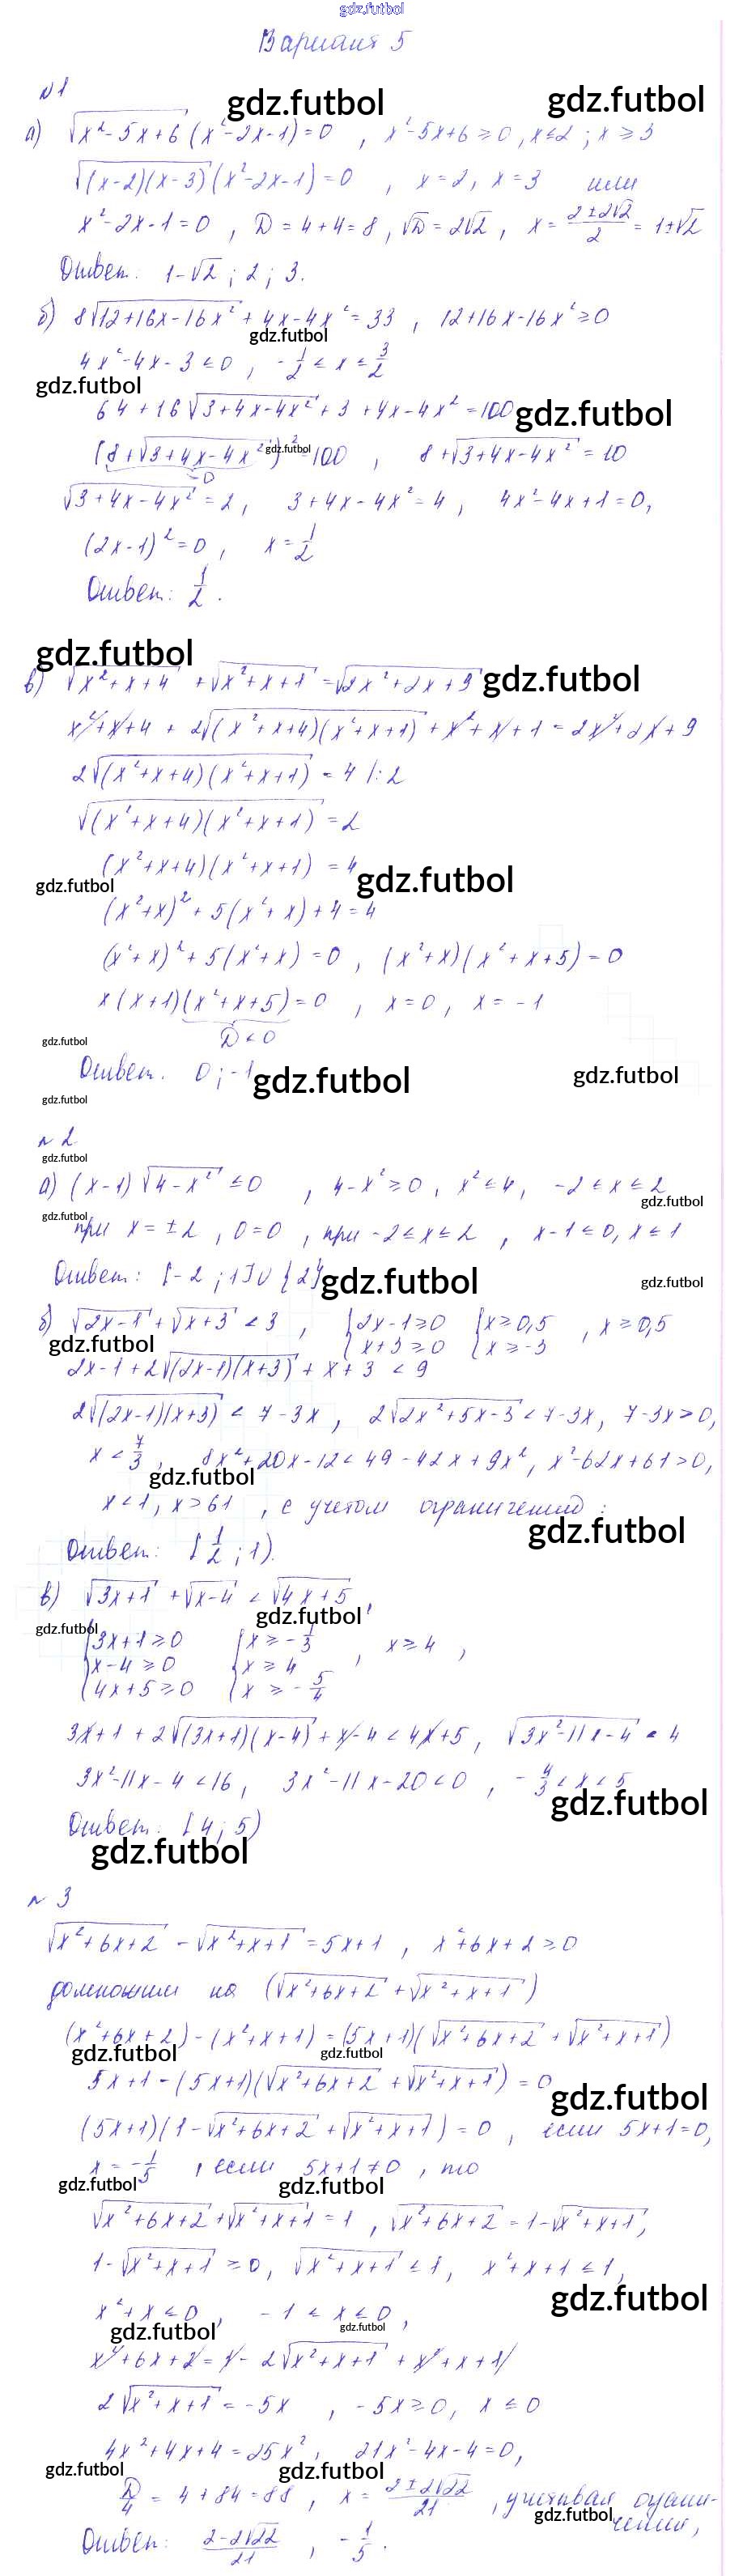 gdz.futbol
Вариант 5
№1
gdz.futbol gdz.futbol
а) √(x²-5x+6) (x²-2x-1)=0 , x²-5x+6≥0, x≤2 ; x≥3
√((x-2)(x-3)) (x²-2x-1)=0 , x=2, x=3 или
x²-2x-1=0 , D=4+4=8, √D=2√2, x=(2±2√2)/2=1±√2
Ответ: 1-√2 ; 2 ; 3.
б) 8√(12+16x-16x²)+4x-4x²=33 , 12+16x-16x²≥0
gdz.futbol
4x²-4x-3≤0 , -1/2≤x≤3/2
gdz.futbol
64+16√(3+4x-4x²)+3+4x-4x²=100
gdz.futbol
(8+√(3+4x-4x²))²=100 , 8+√(3+4x-4x²)=10
gdz.futbol
√(3+4x-4x²)=2, 3+4x-4x²=4 , 4x²-4x+1=0,
(2x-1)²=0 , x=1/2
Ответ: 1/2 .
gdz.futbol
в) √(x²+x+4) +√(x²+x+1)=√(2x²+2x+9)
gdz.futbol
x²+x+4 + 2√((x²+x+4)(x²+x+1))+x²+x+1=2x²+2x+9
2√((x²+x+4)(x²+x+1)) = 4 /:2
√((x²+x+4)(x²+x+1)) =2
(x²+x+4)(x²+x+1) =4
gdz.futbol gdz.futbol
(x²+x)²+5(x²+x)+4=4
(x²+x)²+5(x²+x)=0 , (x²+x)(x²+x+5)=0
x(x+1)(x²+x+5)=0 , x=0, x=-1
D<0
gdz.futbol
Ответ. 0 ; -1
gdz.futbol gdz.futbol
gdz.futbol
№2
gdz.futbol
а) (x-1)√(4-x²) ≤0 , 4-x²≥0, x²≤4, -2≤x≤2
gdz.futbol
gdz.futbol
при x=±2 , 0=0 , при -2≤x≤2 , x-1≤0, x≤1
Ответ: [-2 ; 1]U{2}
gdz.futbol gdz.futbol
б) √(2x-1)+√(x+3)<3 , {2x-1≥0 {x≥0,5 , x≥0,5
x+3≥0 x≥-3
gdz.futbol
2x-1+2√((2x-1)(x+3))+x+3<9
2√((2x-1)(x+3)) < 7-3x , 2√(2x²+5x-3)<7-3x, 7-3x>0,
x<7/3 , 8x²+20x-12<49-42x+9x², x²-62x+61>0,
gdz.futbol
x<1, x>61 , с учетом ограничений :
gdz.futbol
Ответ: [1/2 ; 1).
в) √(3x+1) +√(x-4) < √(4x+5) ,
gdz.futbol
gdz.futbol
{3x+1≥0 {x≥-1/3 , x≥4 ,
x-4≥0 x≥4
4x+5≥0 x≥-5/4
3x+1+2√((3x+1)(x-4))+x-4<4x+5, √(3x²-11x-4) < 4
3x²-11x-4<16, 3x²-11x-20<0 , -4/3<x<5
gdz.futbol
Ответ. [4; 5)
gdz.futbol
№3
√(x²+6x+2) -√(x²+x+1)=5x+1 , x²+6x+2≥0
домножим на (√(x²+6x+2)+√(x²+x+1))
(x²+6x+2)-(x²+x+1)=(5x+1)(√(x²+6x+2)+√(x²+x+1))
gdz.futbol gdz.futbol
5x+1-(5x+1)(√(x²+6x+2)+√(x²+x+1))=0
gdz.futbol
(5x+1)(1-√(x²+6x+2)+√(x²+x+1))=0 , если 5x+1=0,
x=-1/5 , если 5x+1≠0 , то
gdz.futbol gdz.futbol
√(x²+6x+2)+√(x²+x+1)=1 , √(x²+6x+2)=1-√(x²+x+1),
1-√(x²+x+1)≥0, √(x²+x+1)≤1, x²+x+1≤1,
gdz.futbol
x²+x≤0, -1≤x≤0 ,
gdz.futbol gdz.futbol
x²+6x+2=1-2√(x²+x+1)+x²+x+1
2√(x²+x+1)=-5x , -5x≥0, x≤0
4x²+4x+4=25x², 21x²-4x-4=0,
gdz.futbol gdz.futbol
D/4=4+84=88 , x=(2±2√22)/21 , учитывая ограни-
gdz.futbol
чения,
Ответ: (2-2√22)/21 , -1/5 .